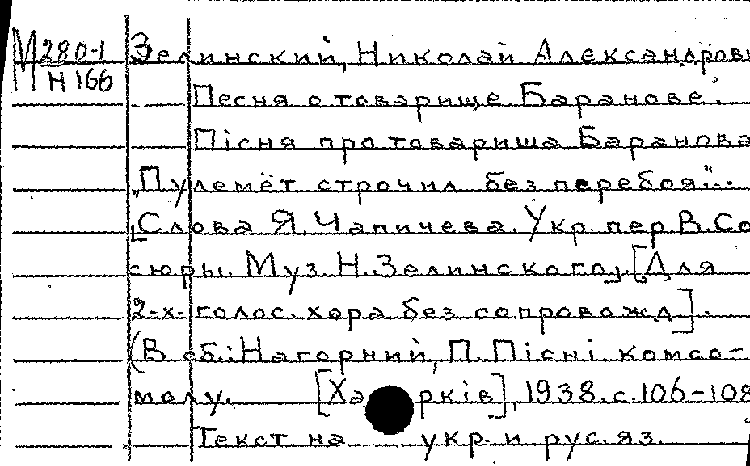 М280-1 Зелинский, Николай Александрови
Н166
Песня о товарище Баранове.
Пісня про товариша Баранова
„Пулемёт строчил без перебоя"...
[Слова Я. Чапичева. Укр. пер. В. Со
сюры. Муз. Н. Зелинского]. [Для
2-х-голос. хора без сопровожд].
(В сб.: Нагорний, П. Пісні комсо-
молу. [Харків], 1938. с. 106-108
Текст на укр. и рус. яз.